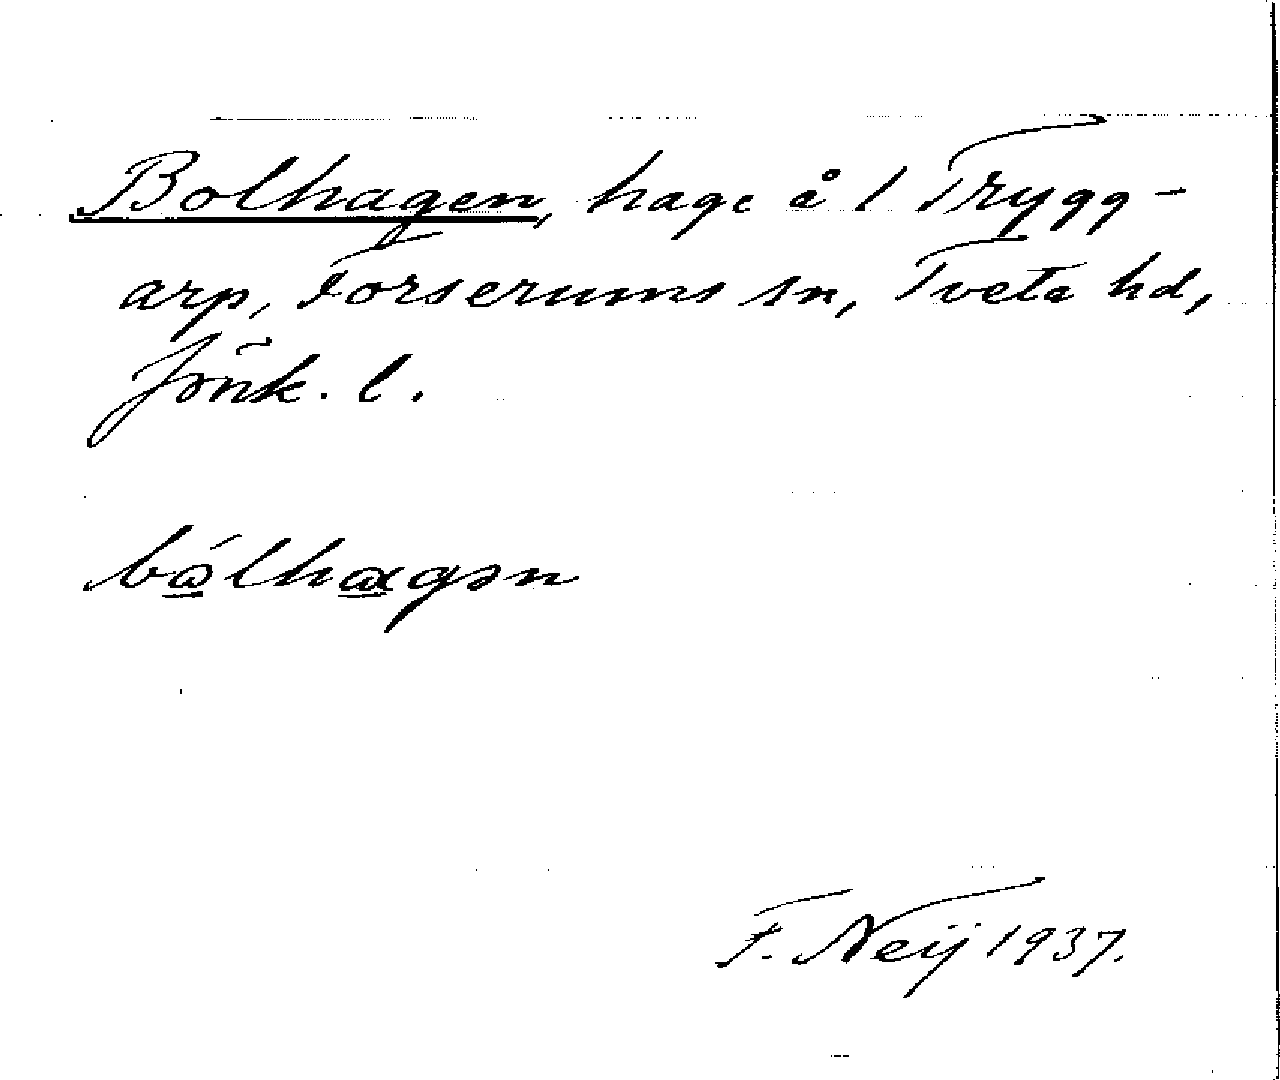 Bolhagen, hage å 1 Trygg-
arp, Forserums sn, Tveta hd,
Jönk. l.
bώ̲lhα̲gən
F. Neij 1937.